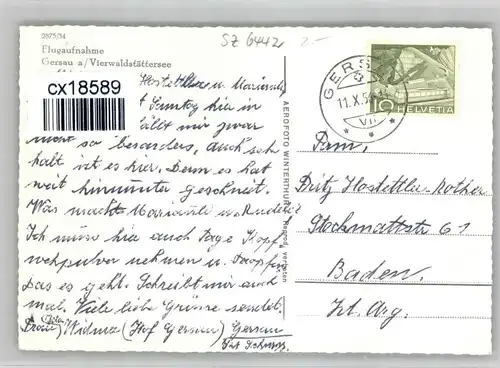 2875/34
Flugaufnahme
Gersau a/Vierwaldstättersee
SZ 6442
cx18589
GERSAU
11.X.5
VII
10 HELVETIA
AEROFOTO WINTERTHUR Reprod. verboten
u. Marianli
Samstag hier in
fällt mir zwar
nicht so besonders, auch seh
kalt ist es hier. Denn es hat
weit hinunter geschneit.
Was macht Marianli u. Ruedeli?
Ich muss hier auch tage Kopf
wehpulver nehmen u. Tropfen
das es geht. Schreibt mir auch
mal. Viele liebe Grüsse sendet.
Frau Widmer (Hof Gersau) Gersau
Kt. Schwyz.
Fam.
Fritz Hostettler-Rother
Stockmattstr 61
Baden.
Kt. Arg.